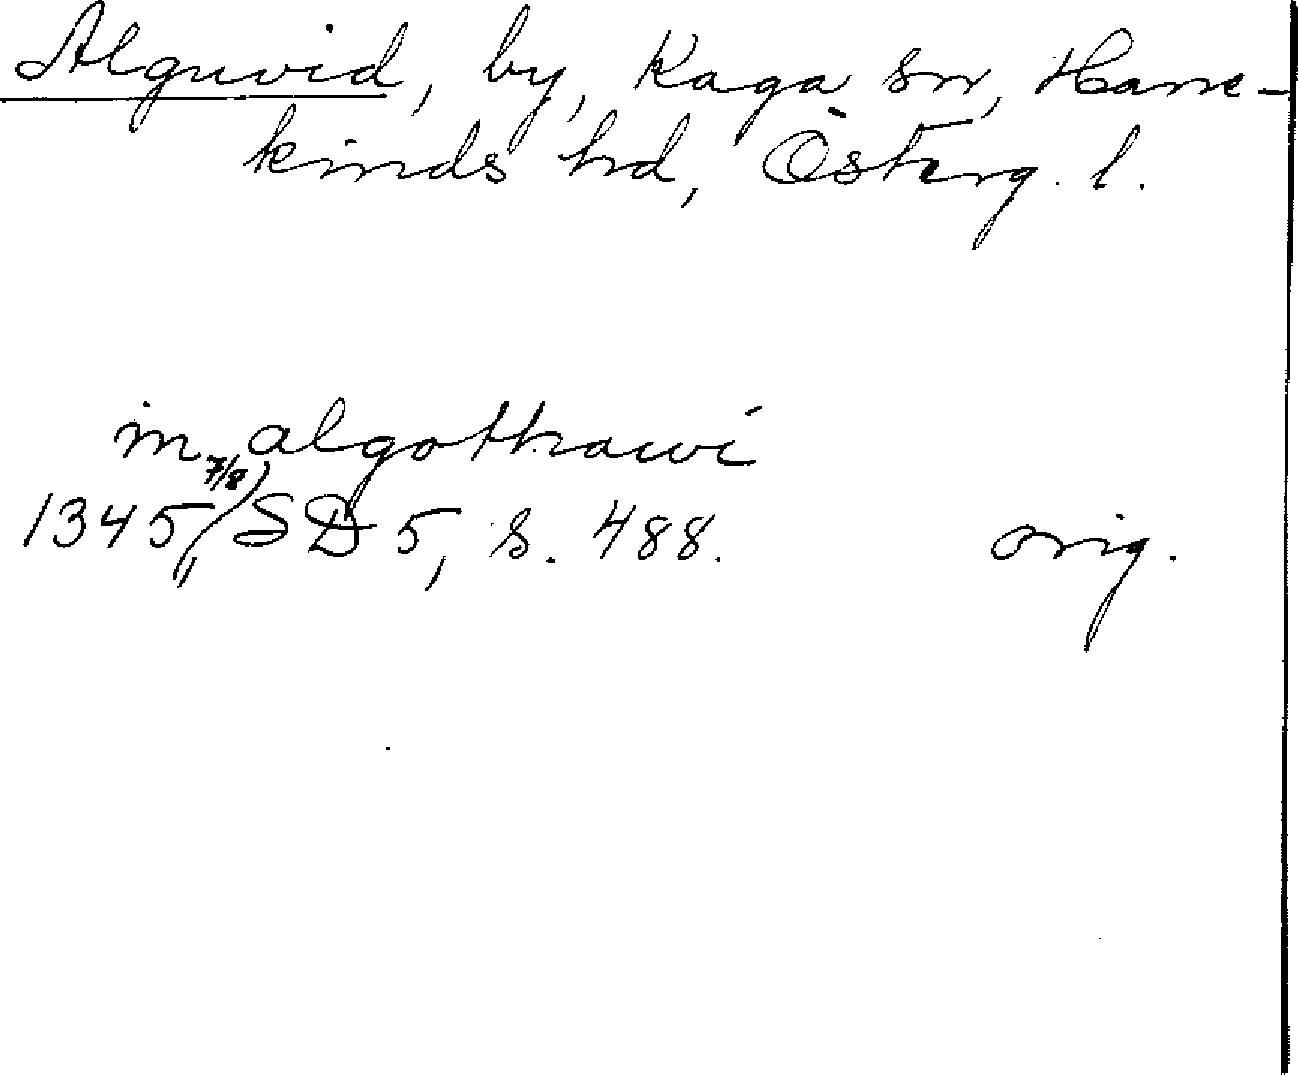 Alguvid, by, Kaga sn, Hane-
kinds hd, Österg. l.
in algothawi
1345 7/8, SD 5, s. 488. orig.